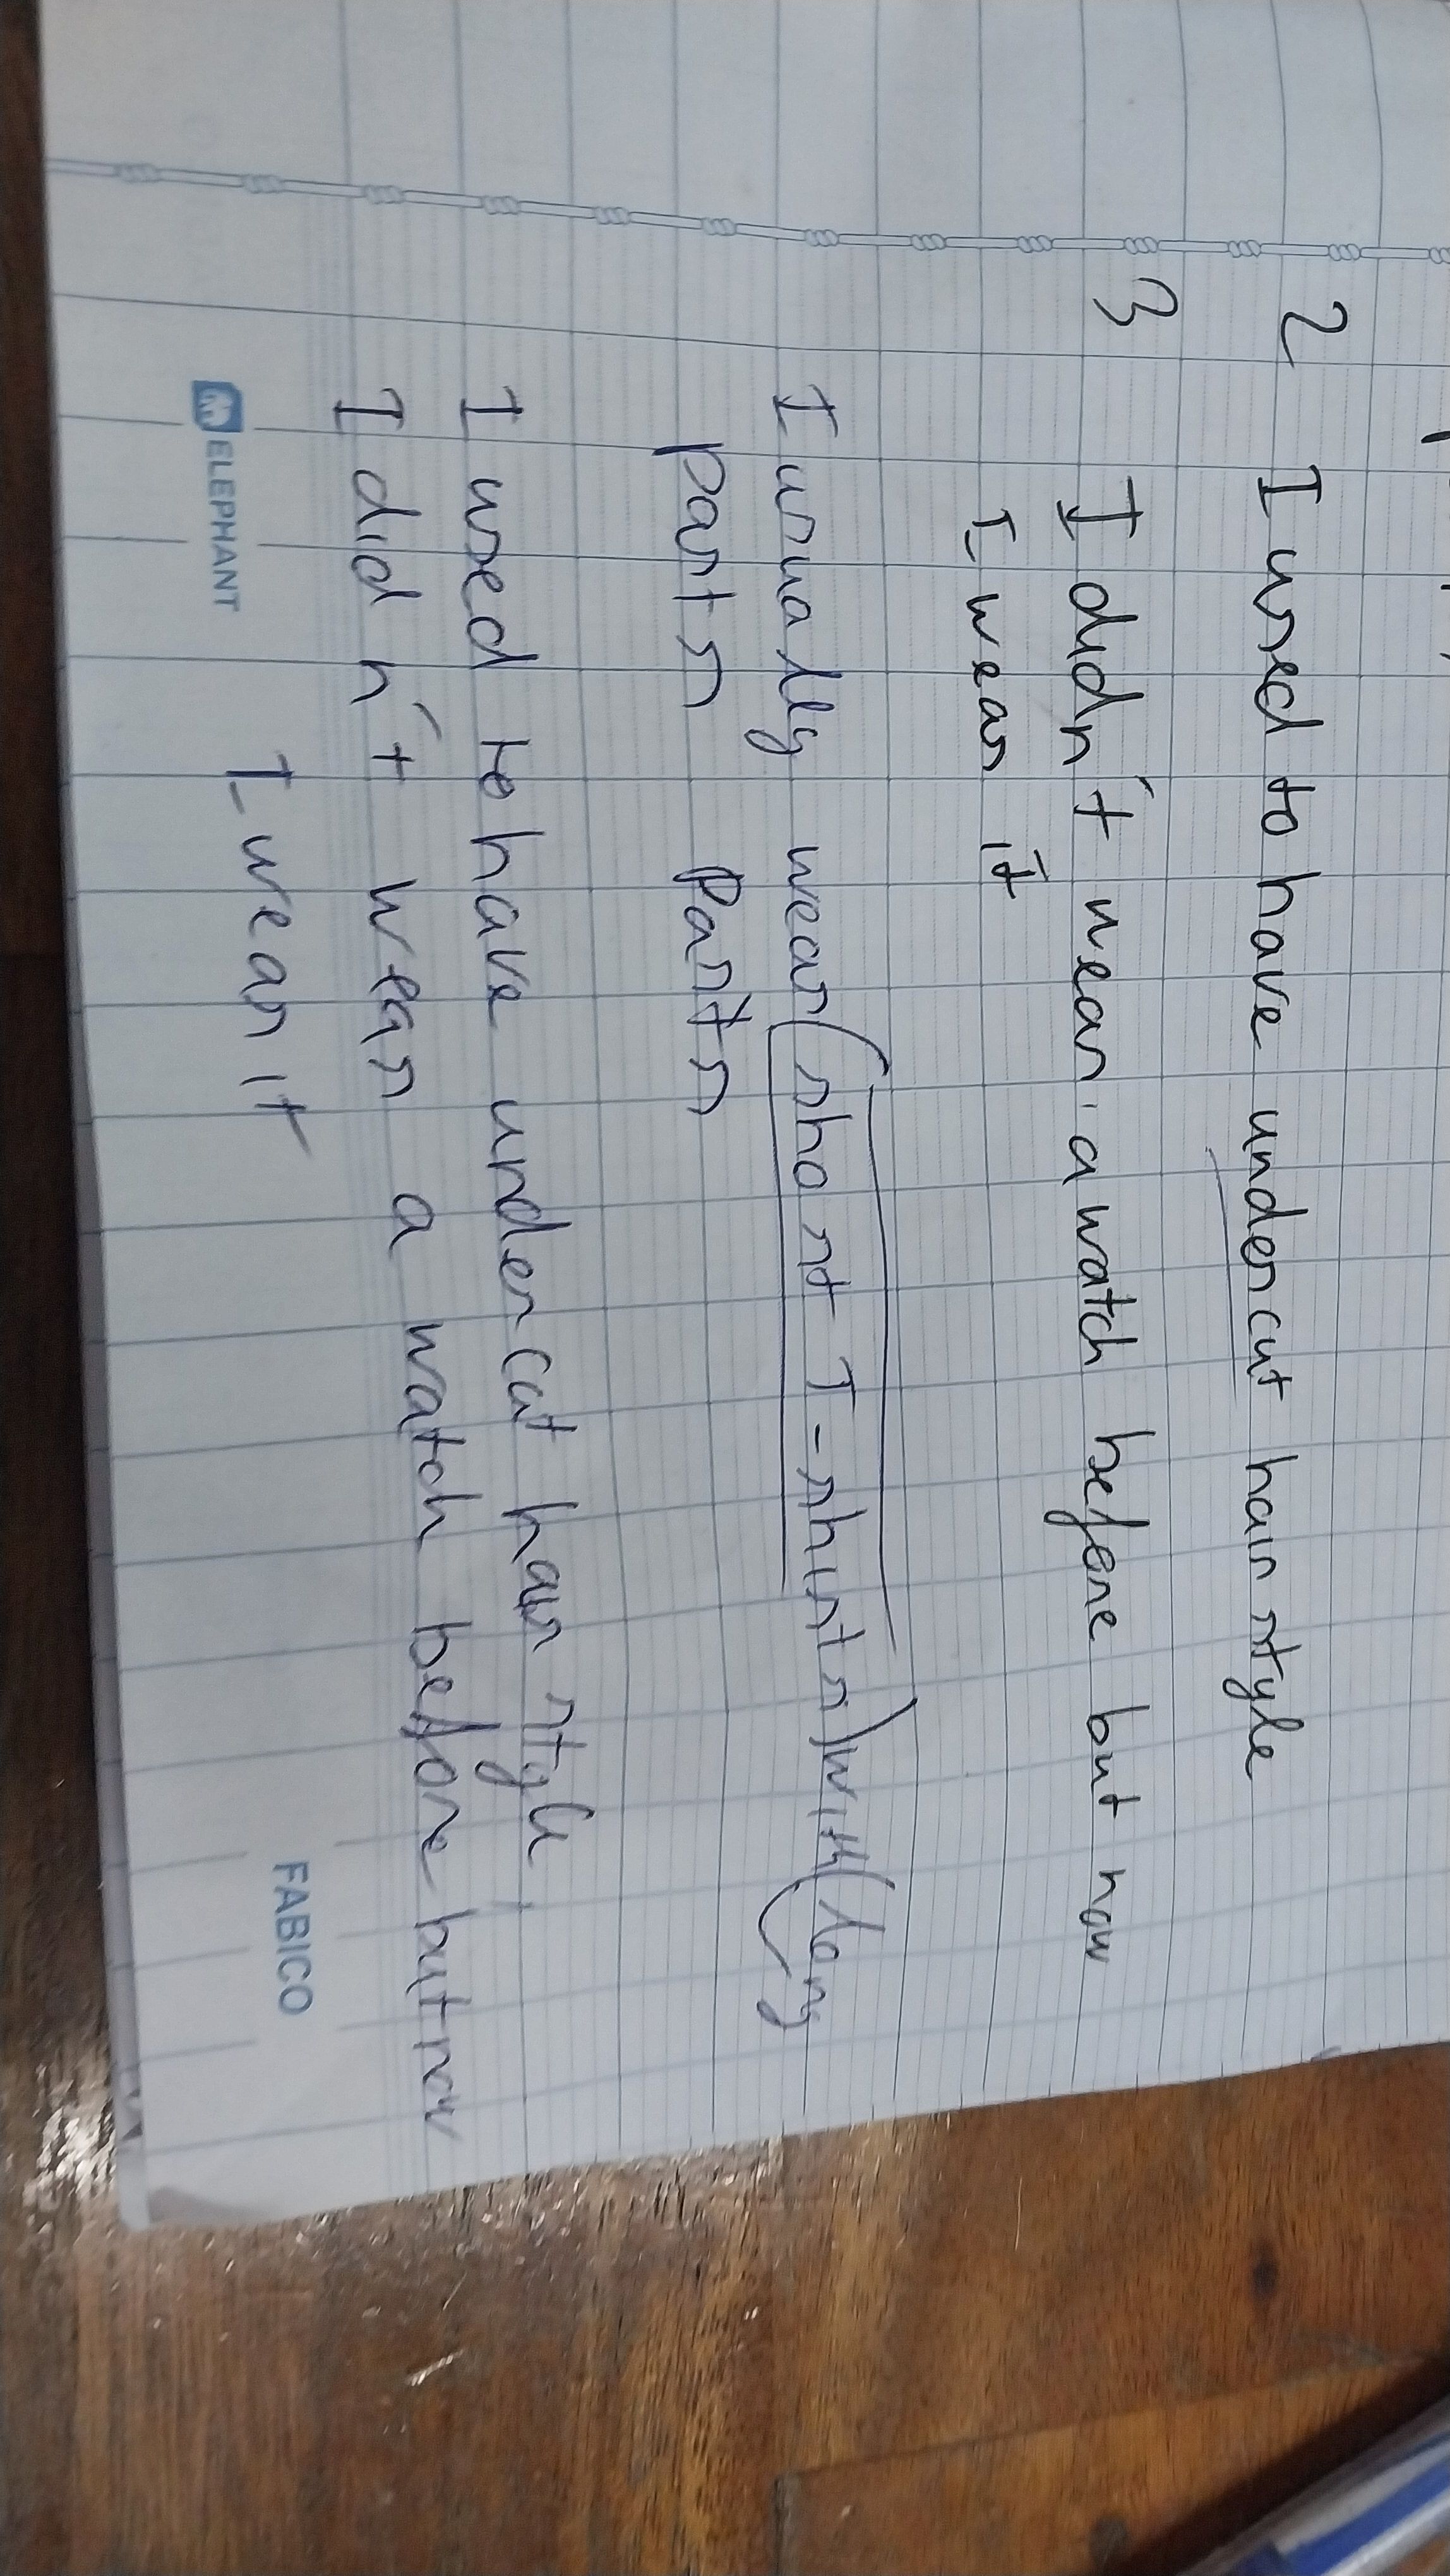 2 I used to have undercut hair style
3 I didn't wear a watch before but now
I wear it
I usually wear (short T-shirts) with (long
pants pants
I used to have undercut hair style
I didn't wear a watch before but now
I wear it
ELEPHANT FABICO